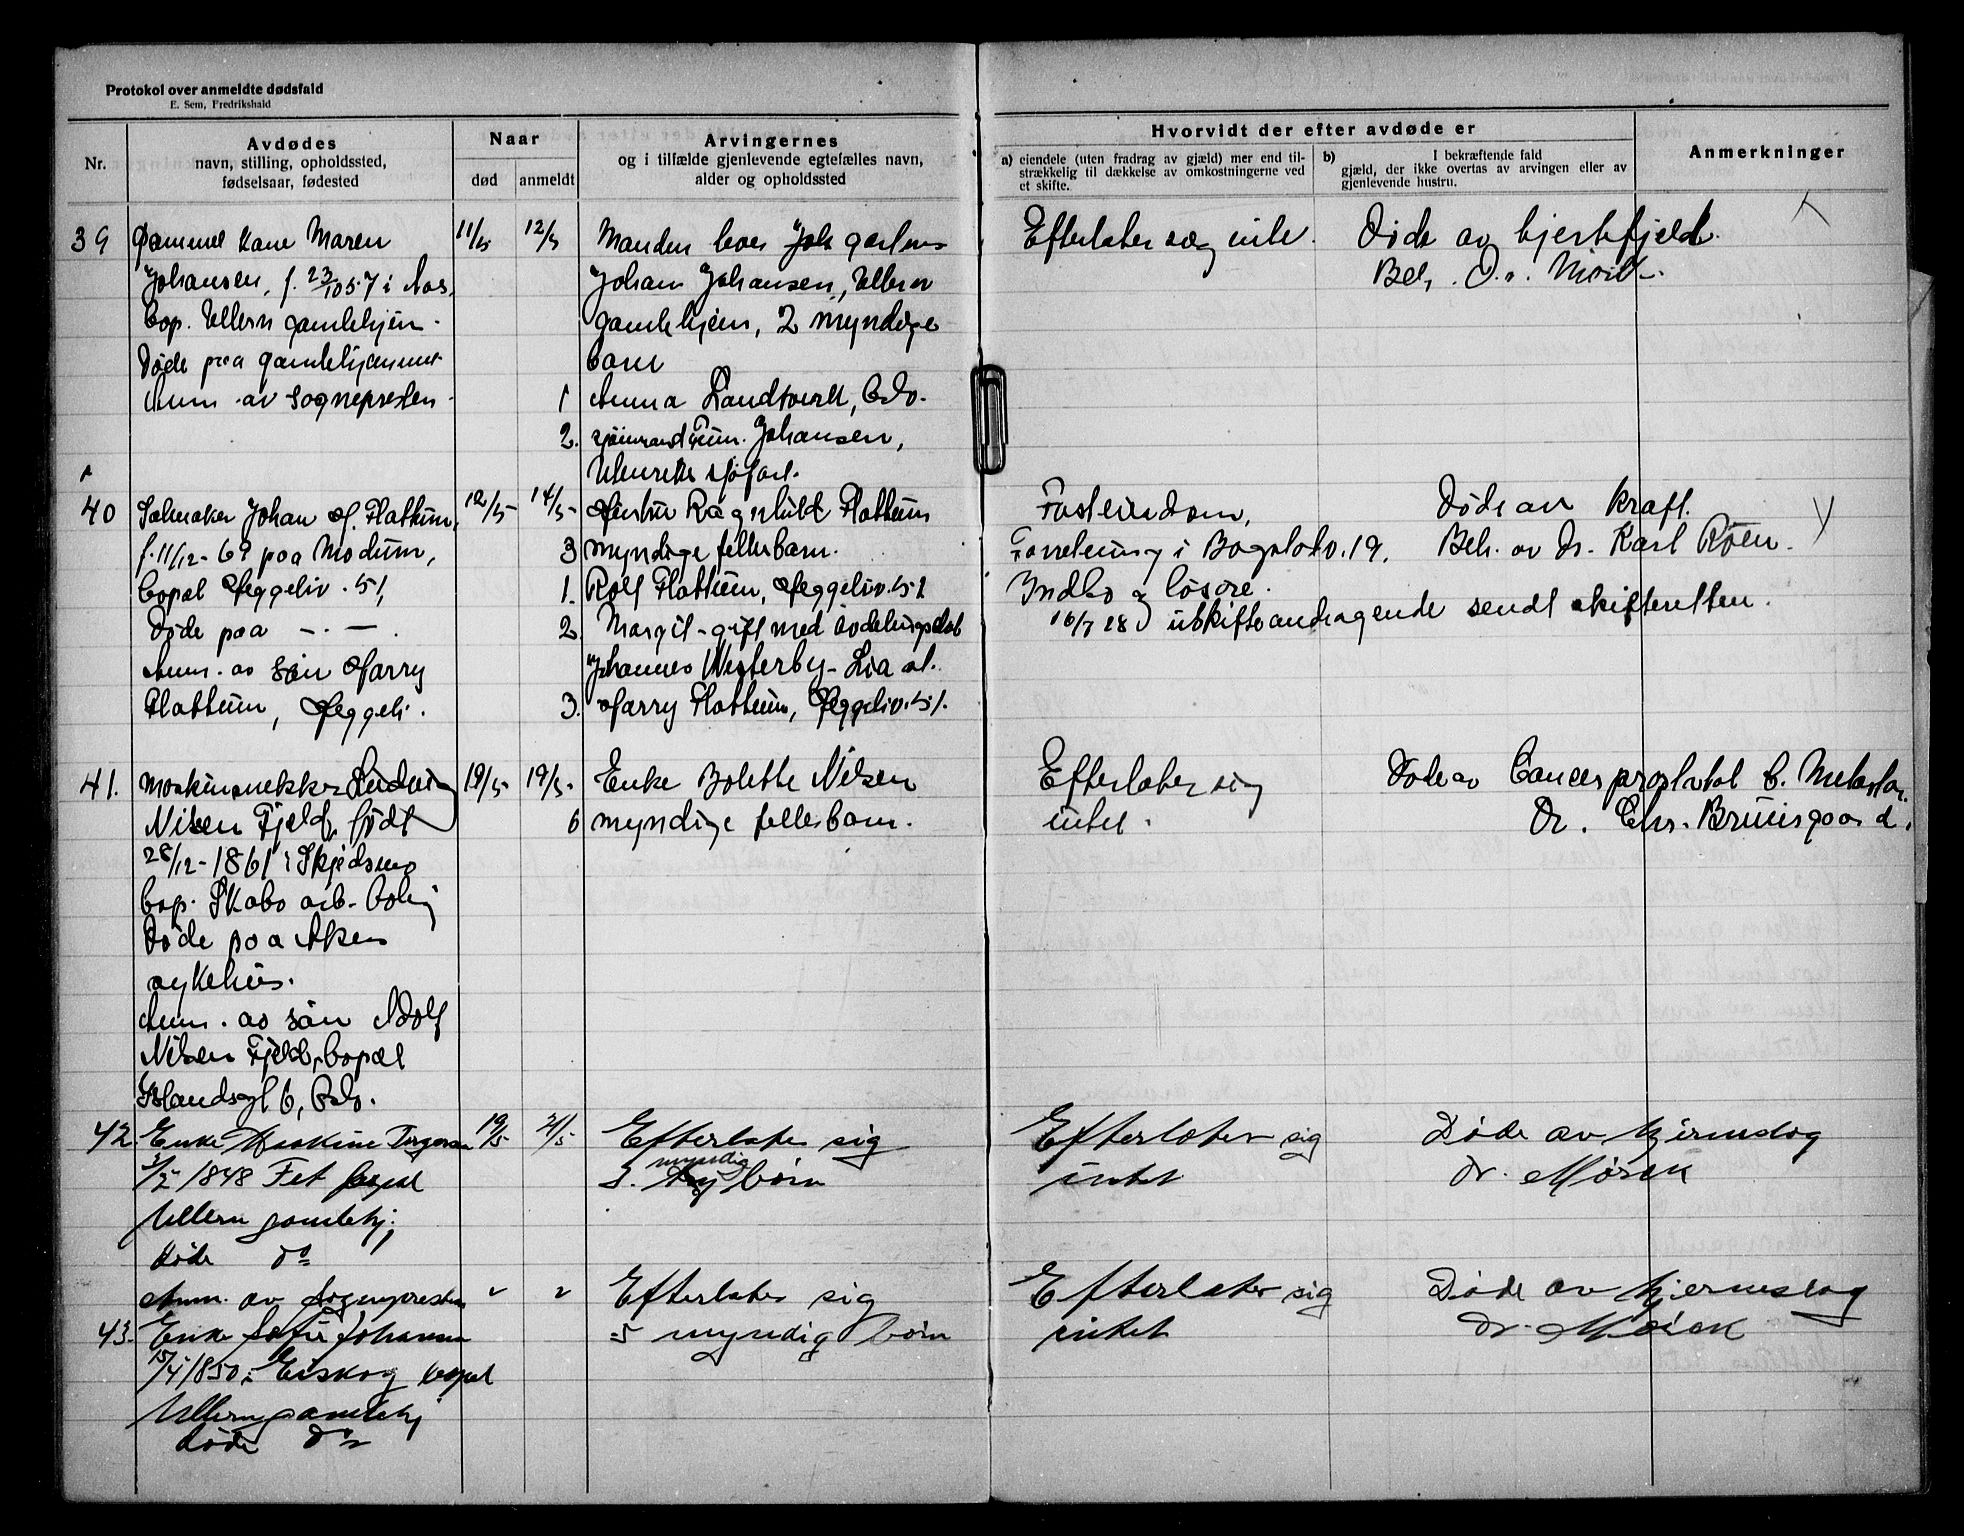 Protokol over anmeldte dødsfald
E. Sem, Fredrikshald
Nr.
Avdødes
navn, stilling, opholdssted,
fødselsaar, fødested
Naar
død
anmeldt
Arvingernes
og i tilfælde gjenlevende egtefælles navn,
alder og opholdssted
Hvorvidt der efter avdøde er
a) eiendele (uten fradrag av gjæld) mer end til-
strækkelig til dækkelse av omkostningerne ved
et skifte.
b) I bekræftende fald
gjæld, der ikke overtas av arvingen eller av
gjenlevende hustru.
Anmerkninger
39
Gammel kone Maren
Johansen, f. 23/10 57 i Aas,
bop. Ullern gamlehjem.
Døde paa gamlehjemmet
Anm. av sognepresten.
11/5
12/5
Manden lever
Johan Johansen, Ullern
gamlehjem, 2 myndige
barn
1 Anna Landtvedt, Oslo.
2. Johansen,
Efterlater seg intet.
Døde av hjertefeil.
Beh. Dr. Mørk.
40
Salmaker Johan H. Flattum,
f. 11/12-69 paa Modum,
bopæl Heggeliv. 51,
Døde paa — . — .
Anm. av søn Harry
Flattum, Heggeli.
12/5
14/5
Hustru Ragnhild Flattum
3 myndige fellesbarn.
1. Rolf Flattum, Heggeliv. 51
2. Margit - gift med
Johannes Westerby - Lia al.
3. Harry Flattum, Heggeliv. 51.
Fast eiendom,
Forretning i Bogstadv. 19.
Indbo og løsøre.
16/7 28 utskifteandragende sendt skifteretten.
Døde av kræft.
Beh. av Dr. Karl Røen.
41.
Maskinsnekker Ludvig
Nilsen Fjeld, født
28/12-1861 i Skjedsmo
bop. Skabo arb. bolig
Døde paa Aker
sykehus.
Anm. av søn Adolf
Nilsen Fjeld, bopæl
Islandsgt 6, Oslo.
19/5
19/5
Enke Bolette Nilsen
6 myndige fellesbarn.
Efterlater sig
intet.
Døde av Cancer prostatae c. Metastas.
Dr. Chr. Bruusgaard.
42.
Enke Torgersen
1848 Fet bopæl
Ullern gamlehj.
døde do
Anm. av Sognepresten
19/5
21/5
Efterlater sig
3. myndig børn
Efterlater sig
intet
Døde av hjerneslag
dr. Mørck
43.
Enke Sofie Johansen
15/4 1850 i Eidskog bopæl
Ullern gamlehj
døde do
"
"
Efterlater sig
5 myndig børn
Efterlater sig
intet
Døde av hjerneslag
dr. Mørck